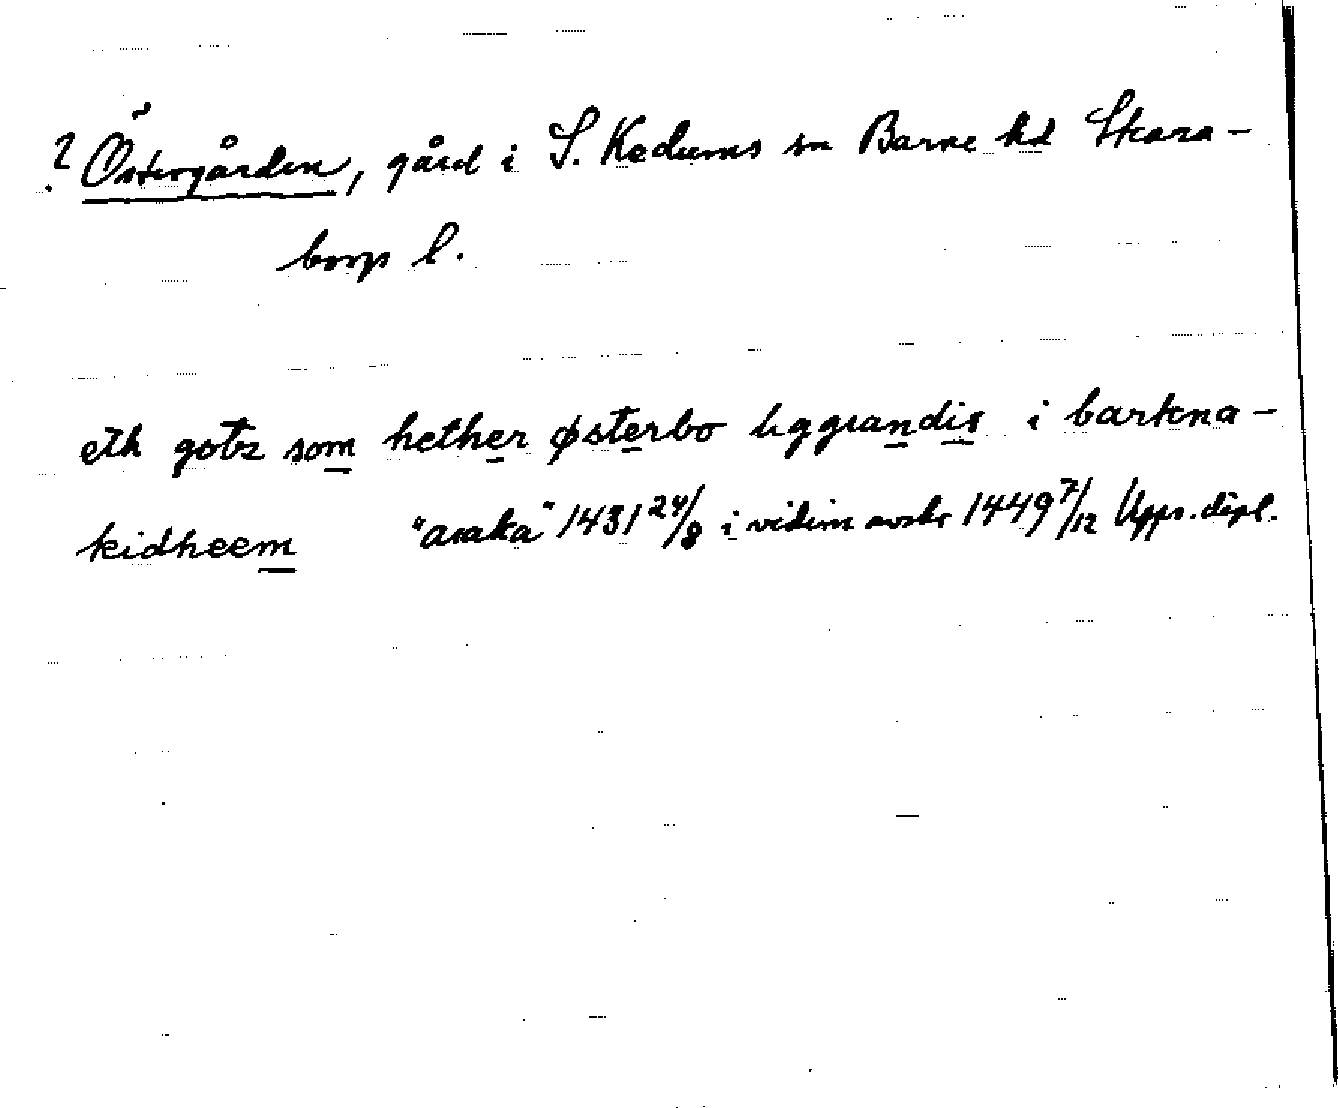 ? Östergården, gård i S. Kedums sn Barne hd Skara-
borgs l.
eth gotz som hether østerbo liggiandis i barkna-
kidheem "asaka" 1431 24/8 i vidim avskr 1449 7/12 Upps. dipl.